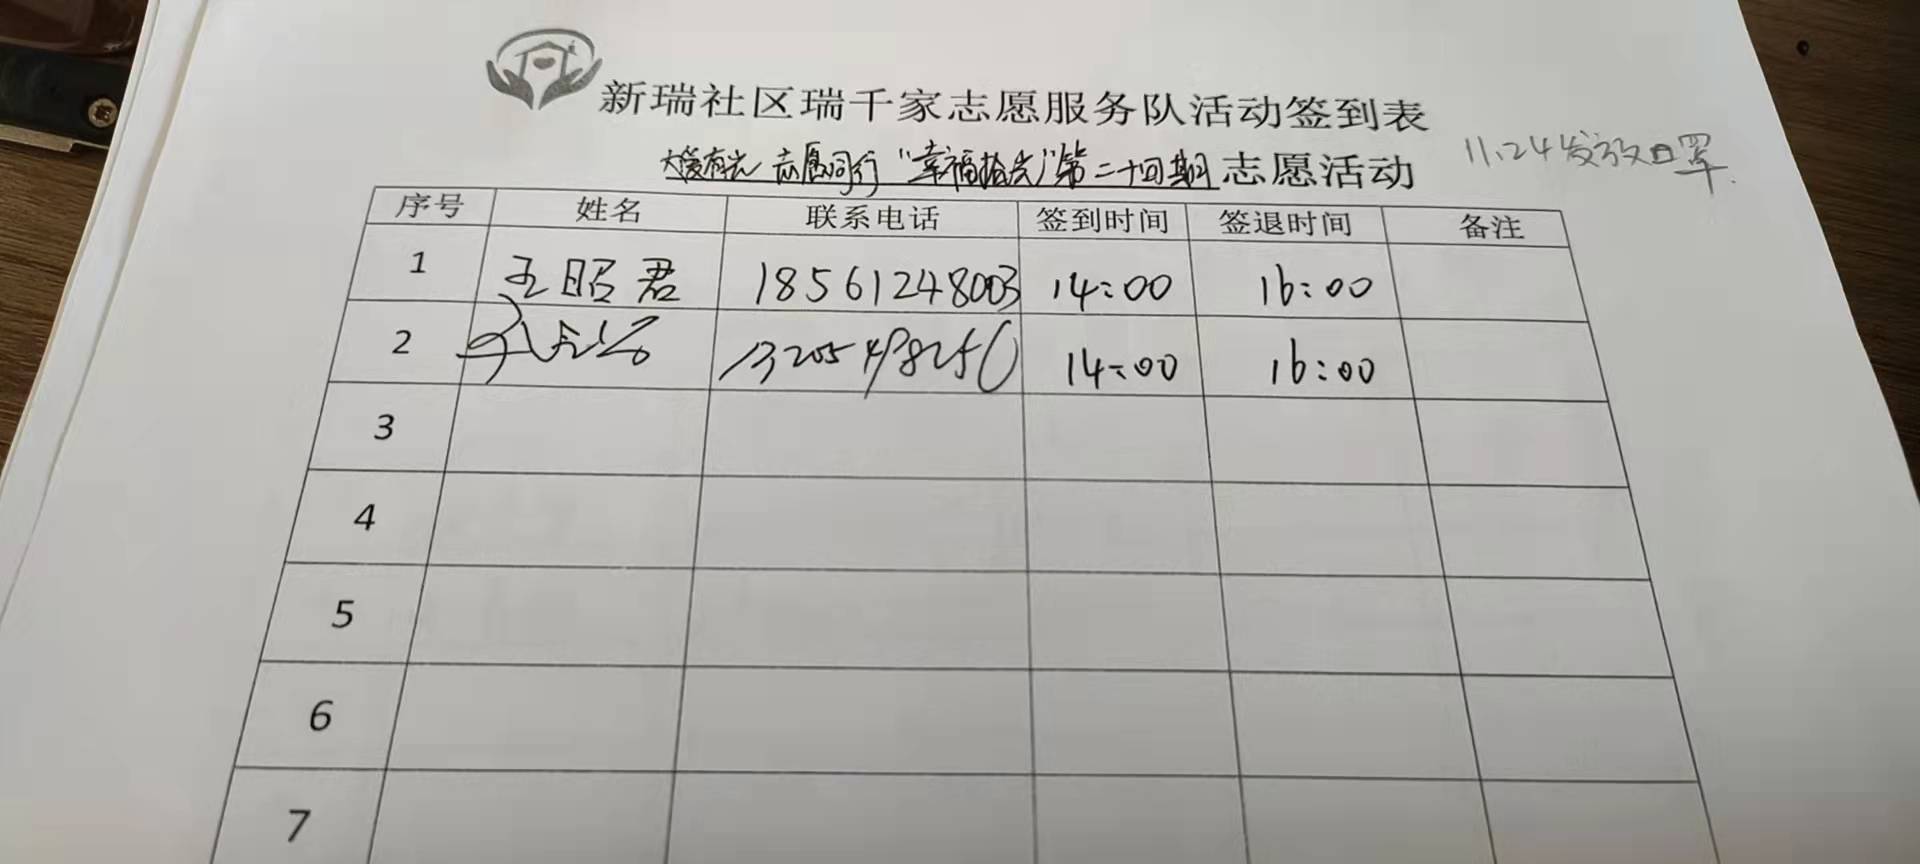 新瑞社区瑞千家志愿服务队活动签到表
大爱有光 志愿同行 "幸福拾光" 第二十四期 志愿活动
11.24发放口罩.
序号 姓名 联系电话 签到时间 签退时间 备注
1 王昭君 18561248003 14:00 16:00
2 14:00 16:00
3
4
5
6
7